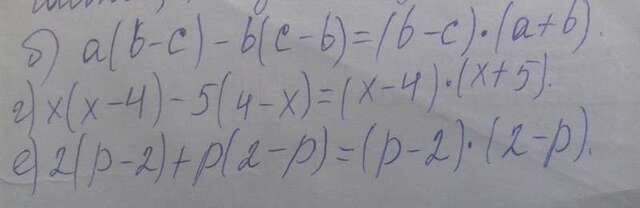 б) a(b-c)-b(c-b)=(b-c)·(a+b).
г) x(x-4)-5(4-x)=(x-4)·(x+5).
е) 2(p-2)+p(2-p)=(p-2)·(2-p).